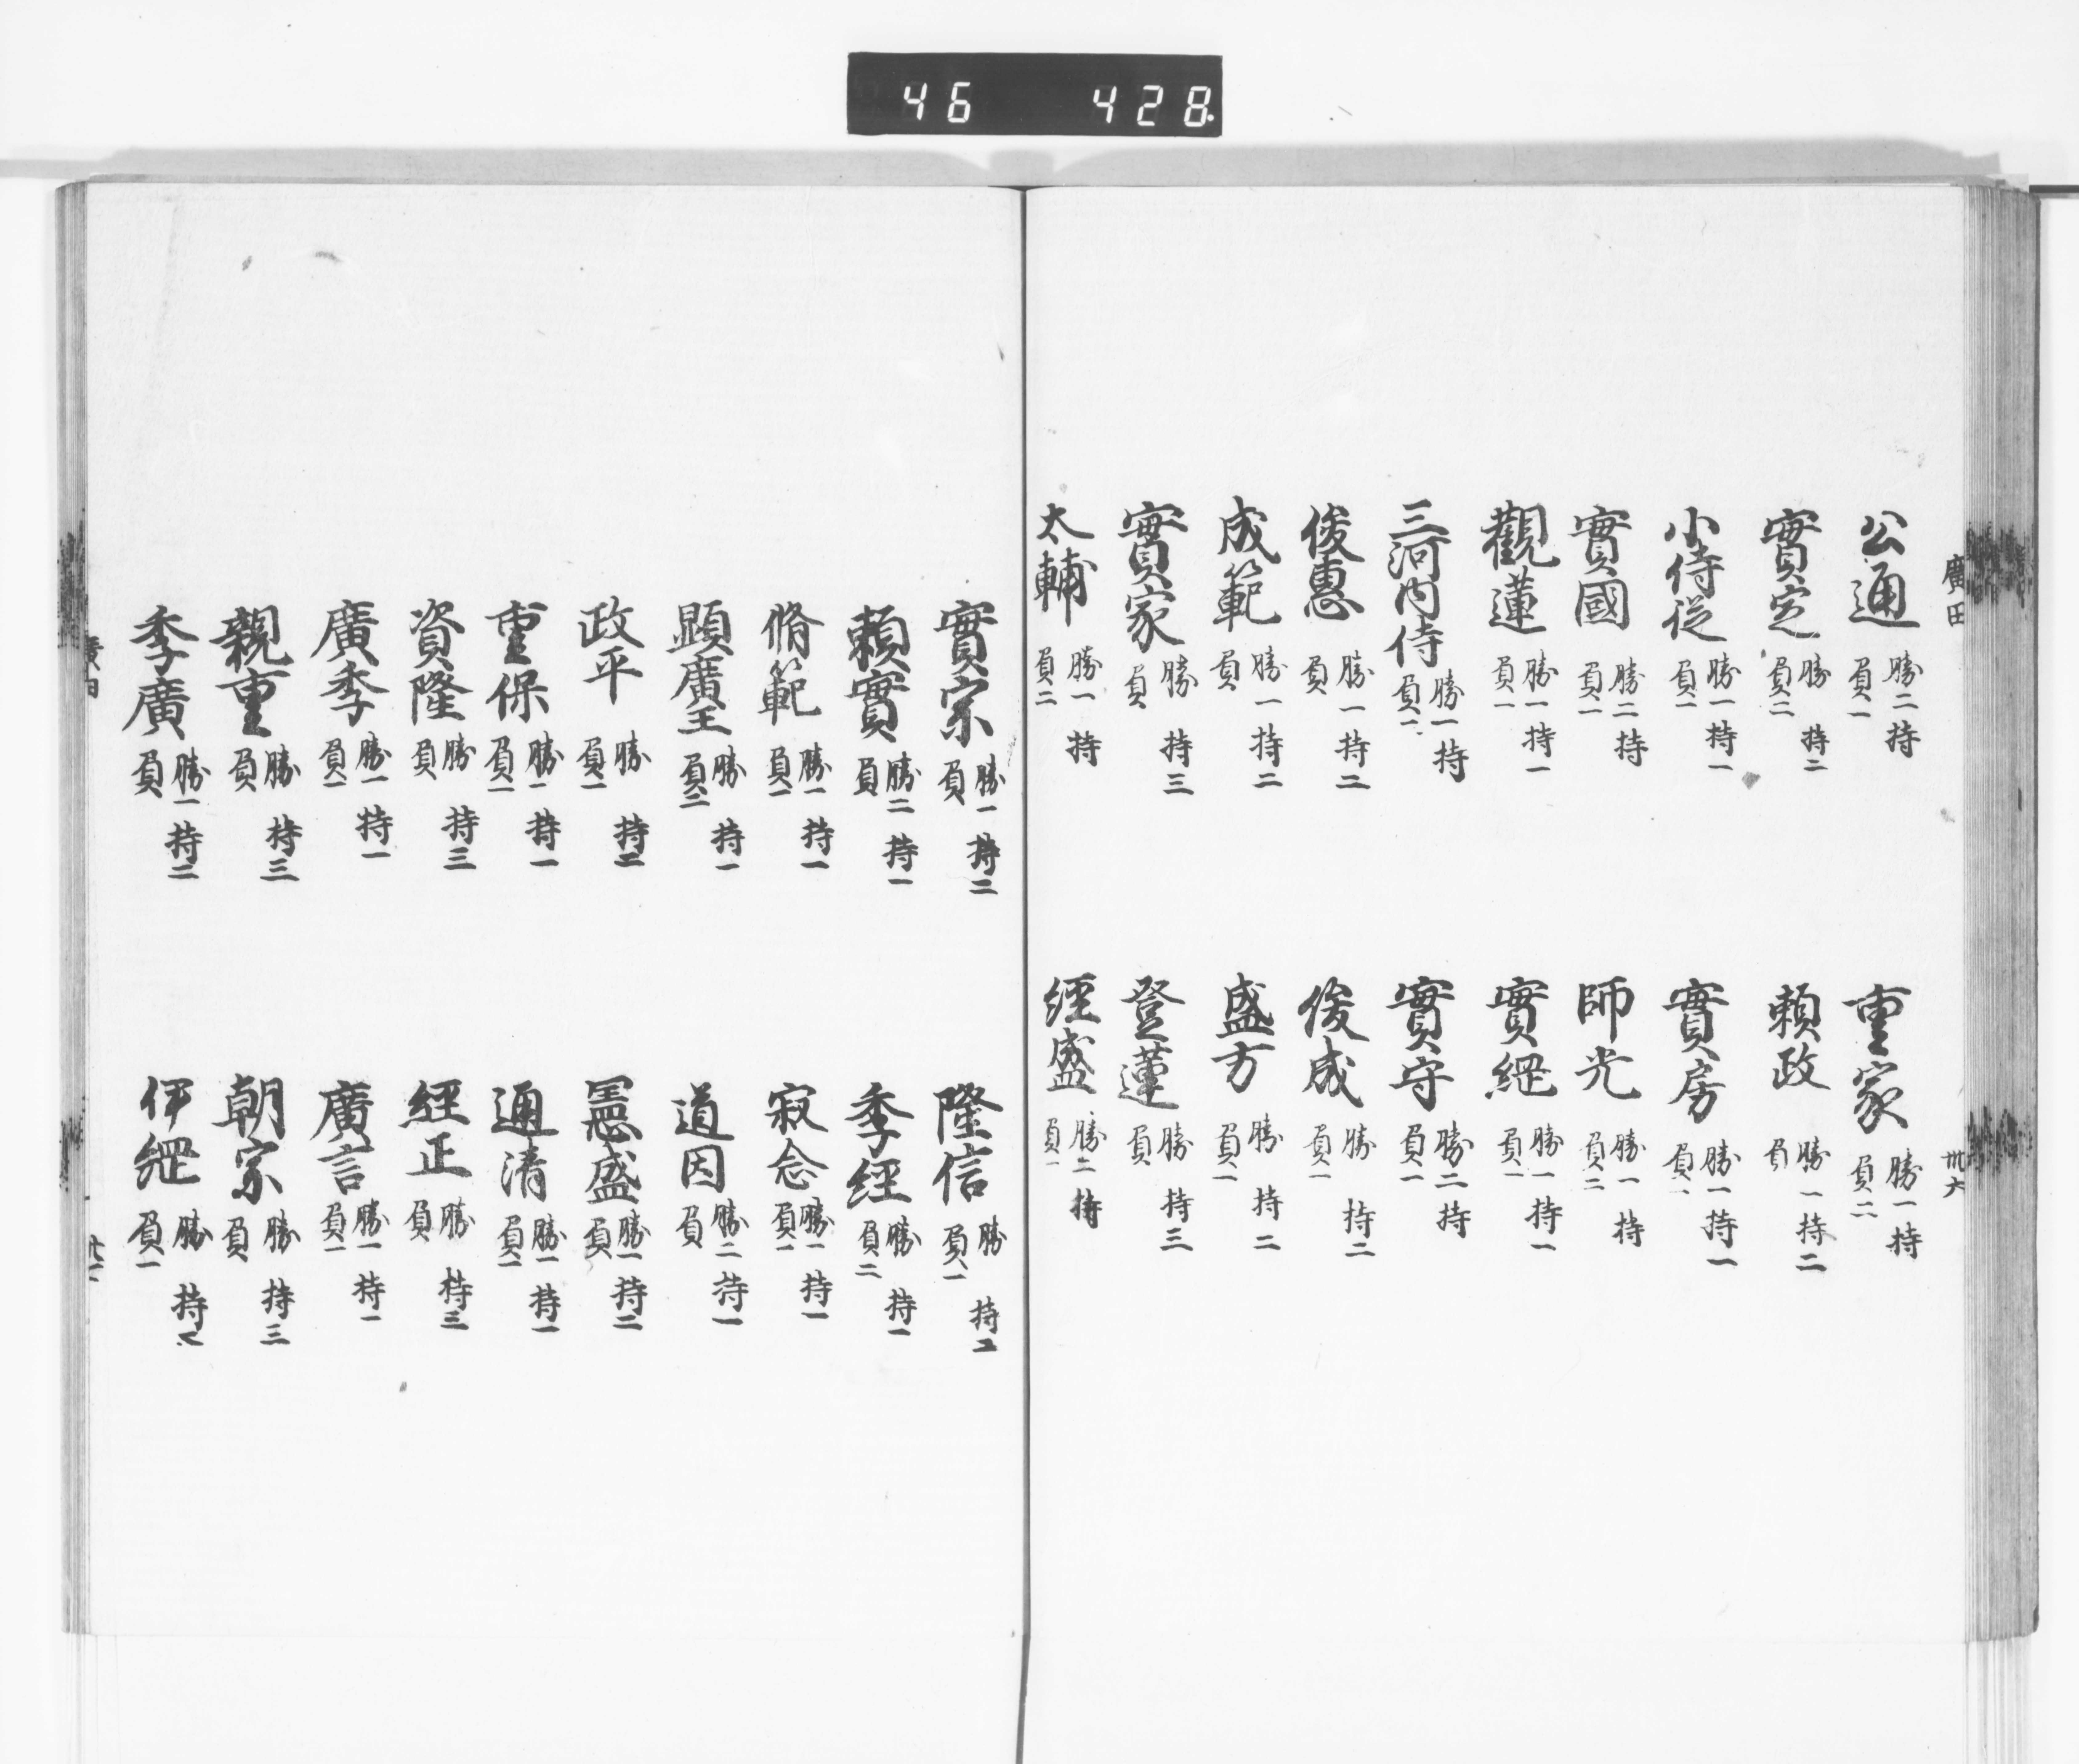 46 428
廣田
公通 勝二 負一 持
實定 勝 負二 持二
小侍従 勝一 負一 持一
實國 勝二 負一 持
觀蓮 勝一 負一 持一
三河内侍 勝一 負二 持
俊惠 勝一 負 持二
成範 勝一 負 持二
實家 勝 負 持三
太輔 勝一 負二 持
重家 勝一 負二 持
頼政 勝一 負 持二
實房 勝一 負一 持一
師光 勝一 負二 持
實綱 勝一 負一 持一
實守 勝二 負一 持
俊成 勝 負一 持二
盛方 勝 負一 持二
登蓮 勝 負 持三
經盛 勝二 負一 持
卅六
實宗 勝一 負 持二
頼實 勝二 負 持一
脩範 勝一 負一 持一
顕廣王 勝 負二 持一
政平 勝 負一 持二
重保 勝一 負一 持一
資隆 勝 負 持三
廣季 勝一 負一 持一
親重 勝 負 持三
季廣 勝一 負 持二
隆信 勝 負一 持二
季經 勝 負二 持一
寂念 勝一 負一 持一
道因 勝二 負 持一
憲盛 勝一 負 持二
通清 勝一 負一 持一
經正 勝 負 持三
廣言 勝一 負一 持一
朝宗 勝 負 持三
伊綱 勝 負一 持二